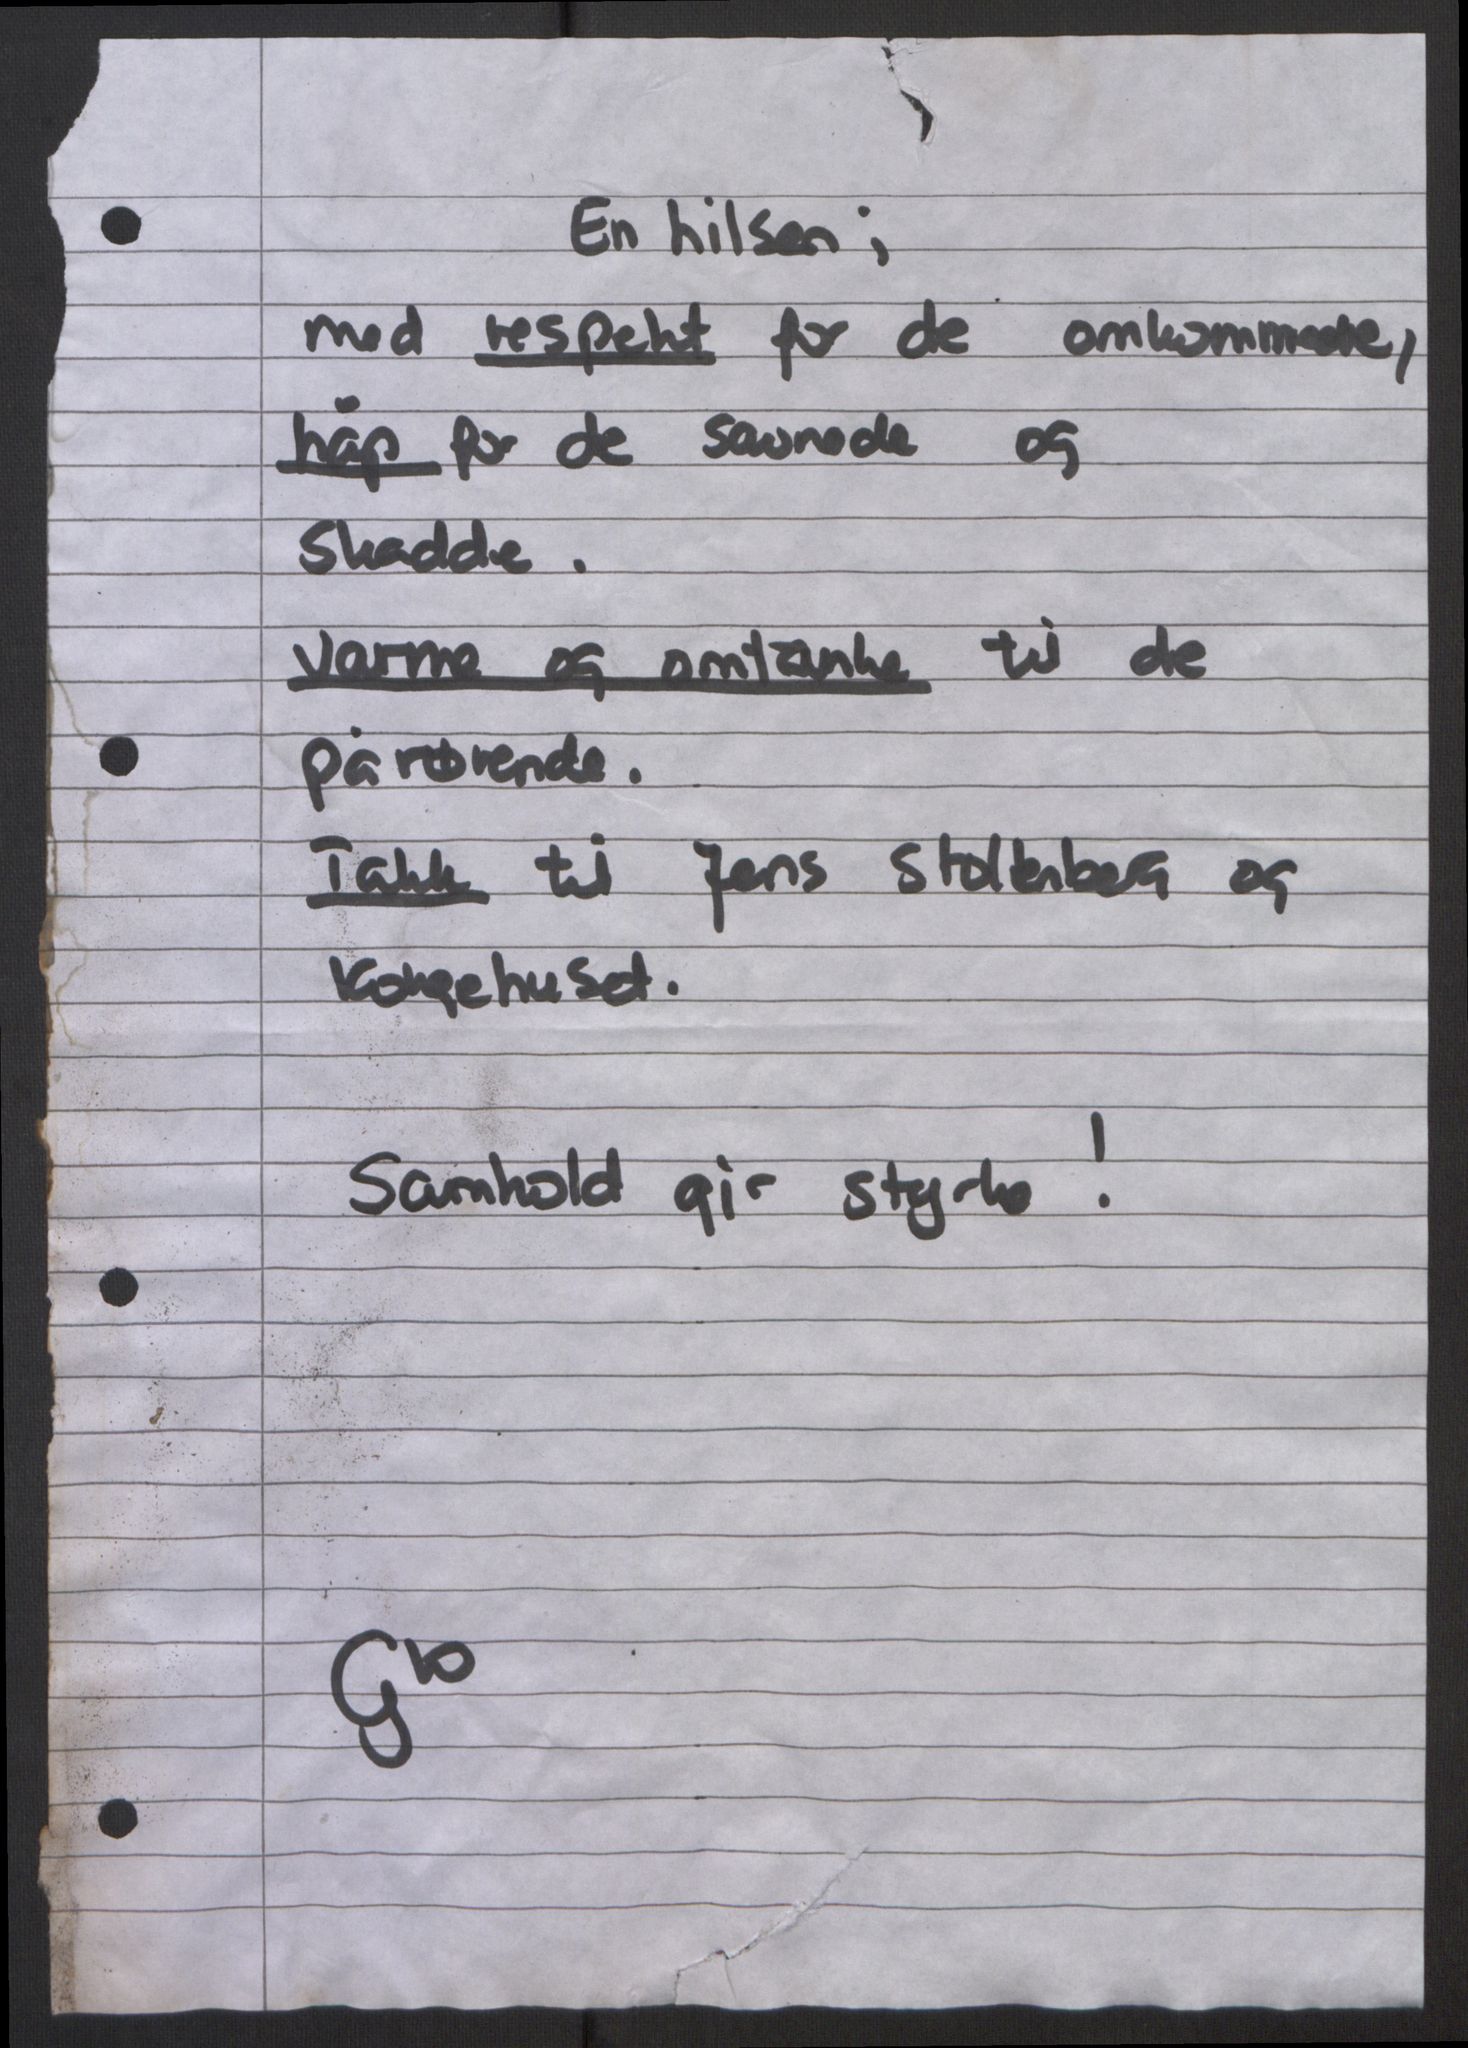 En hilsen;
med respekt for de omkommede,
håp for de savnede og
skadde.
varme og omtanke til de
pårørende.
Takk til Jens Stoltenberg og
Kongehuset.
Samhold gir styrke!
Gro